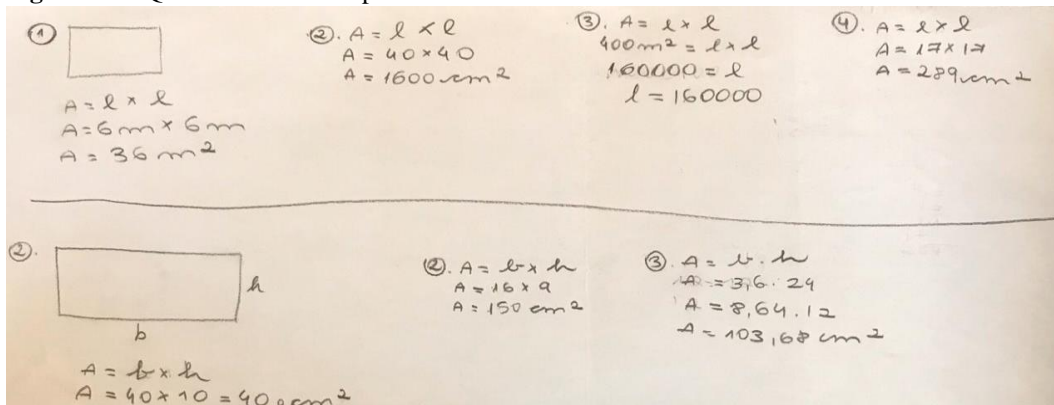 ①
A = l x l
A = 6m x 6m
A = 36 m²
②. A = l x l
A = 40 x 40
A = 1600 cm²
③. A = l x l
400m² = l x l
160000 = l
l = 160000
④. A = l x l
A = 17 x 17
A = 289 cm²
②.
h
b
A = b x h
A = 40 x 10 = 400 cm²
②. A = b x h
A = 16 x 9
A = 150 cm²
③. A = b . h
A = 3,6 . 24
A = 8,64 . 12
A = 103,68 cm²